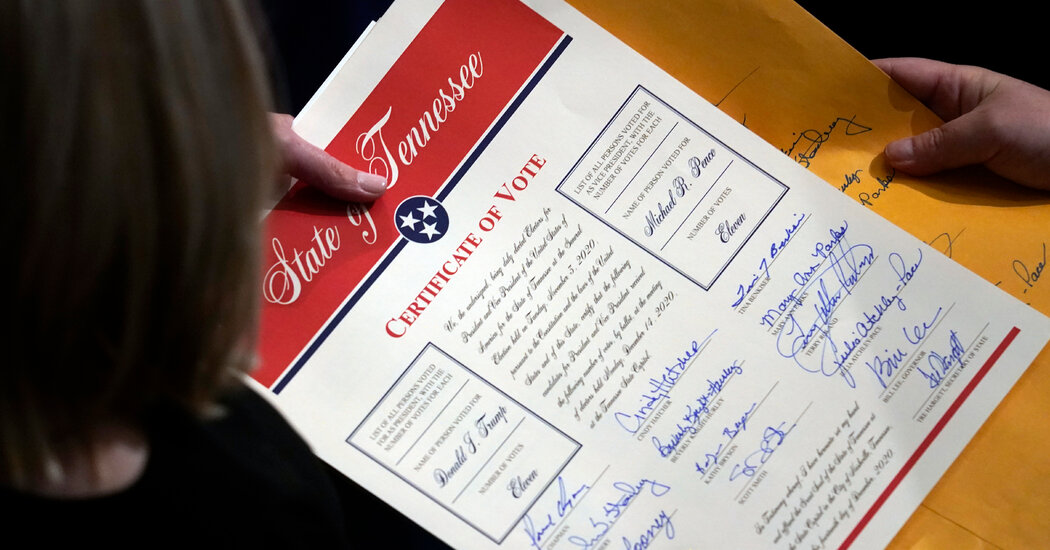 State of Tennessee
CERTIFICATE OF VOTE
We, the undersigned being duly elected Electors for
President and Vice President of the United States of
America for the State of Tennessee at the General
Election held on Tuesday, November 3, 2020,
pursuant to the Constitution and the laws of the United
States and of this State, certify that the following
candidates for President and Vice President received
the following number of votes, by ballot at the meeting
of electors held Monday, December 14, 2020,
at the Tennessee State Capitol.
LIST OF ALL PERSONS VOTED FOR
AS PRESIDENT, WITH THE
NUMBER OF VOTES FOR EACH
NAME OF PERSON VOTED FOR
Donald J. Trump
NUMBER OF VOTES
Eleven
LIST OF ALL PERSONS VOTED FOR
AS VICE PRESIDENT, WITH THE
NUMBER OF VOTES FOR EACH
NAME OF PERSON VOTED FOR
Michael R. Pence
NUMBER OF VOTES
Eleven
CHAPMAN
Cindy Hatcher
CINDY HATCHER
BEVERLY KNIGHT-HURLEY
KATHY BRYSON
SCOTT SMITH
TINA BENKISER
Mary Ann Parks
MARY ANN PARKS
TERRY ROLAND
Julia Atchley-Pace
JULIA ATCHLEY PACE
Bill Lee
BILL LEE, GOVERNOR
TRE HARGETT, SECRETARY OF STATE
In Testimony whereof I have hereunto set my hand
and affixed the Great Seal of the State of Tennessee at
the State Capitol in the City of Nashville, Tennessee,
the fourteenth day of December, 2020